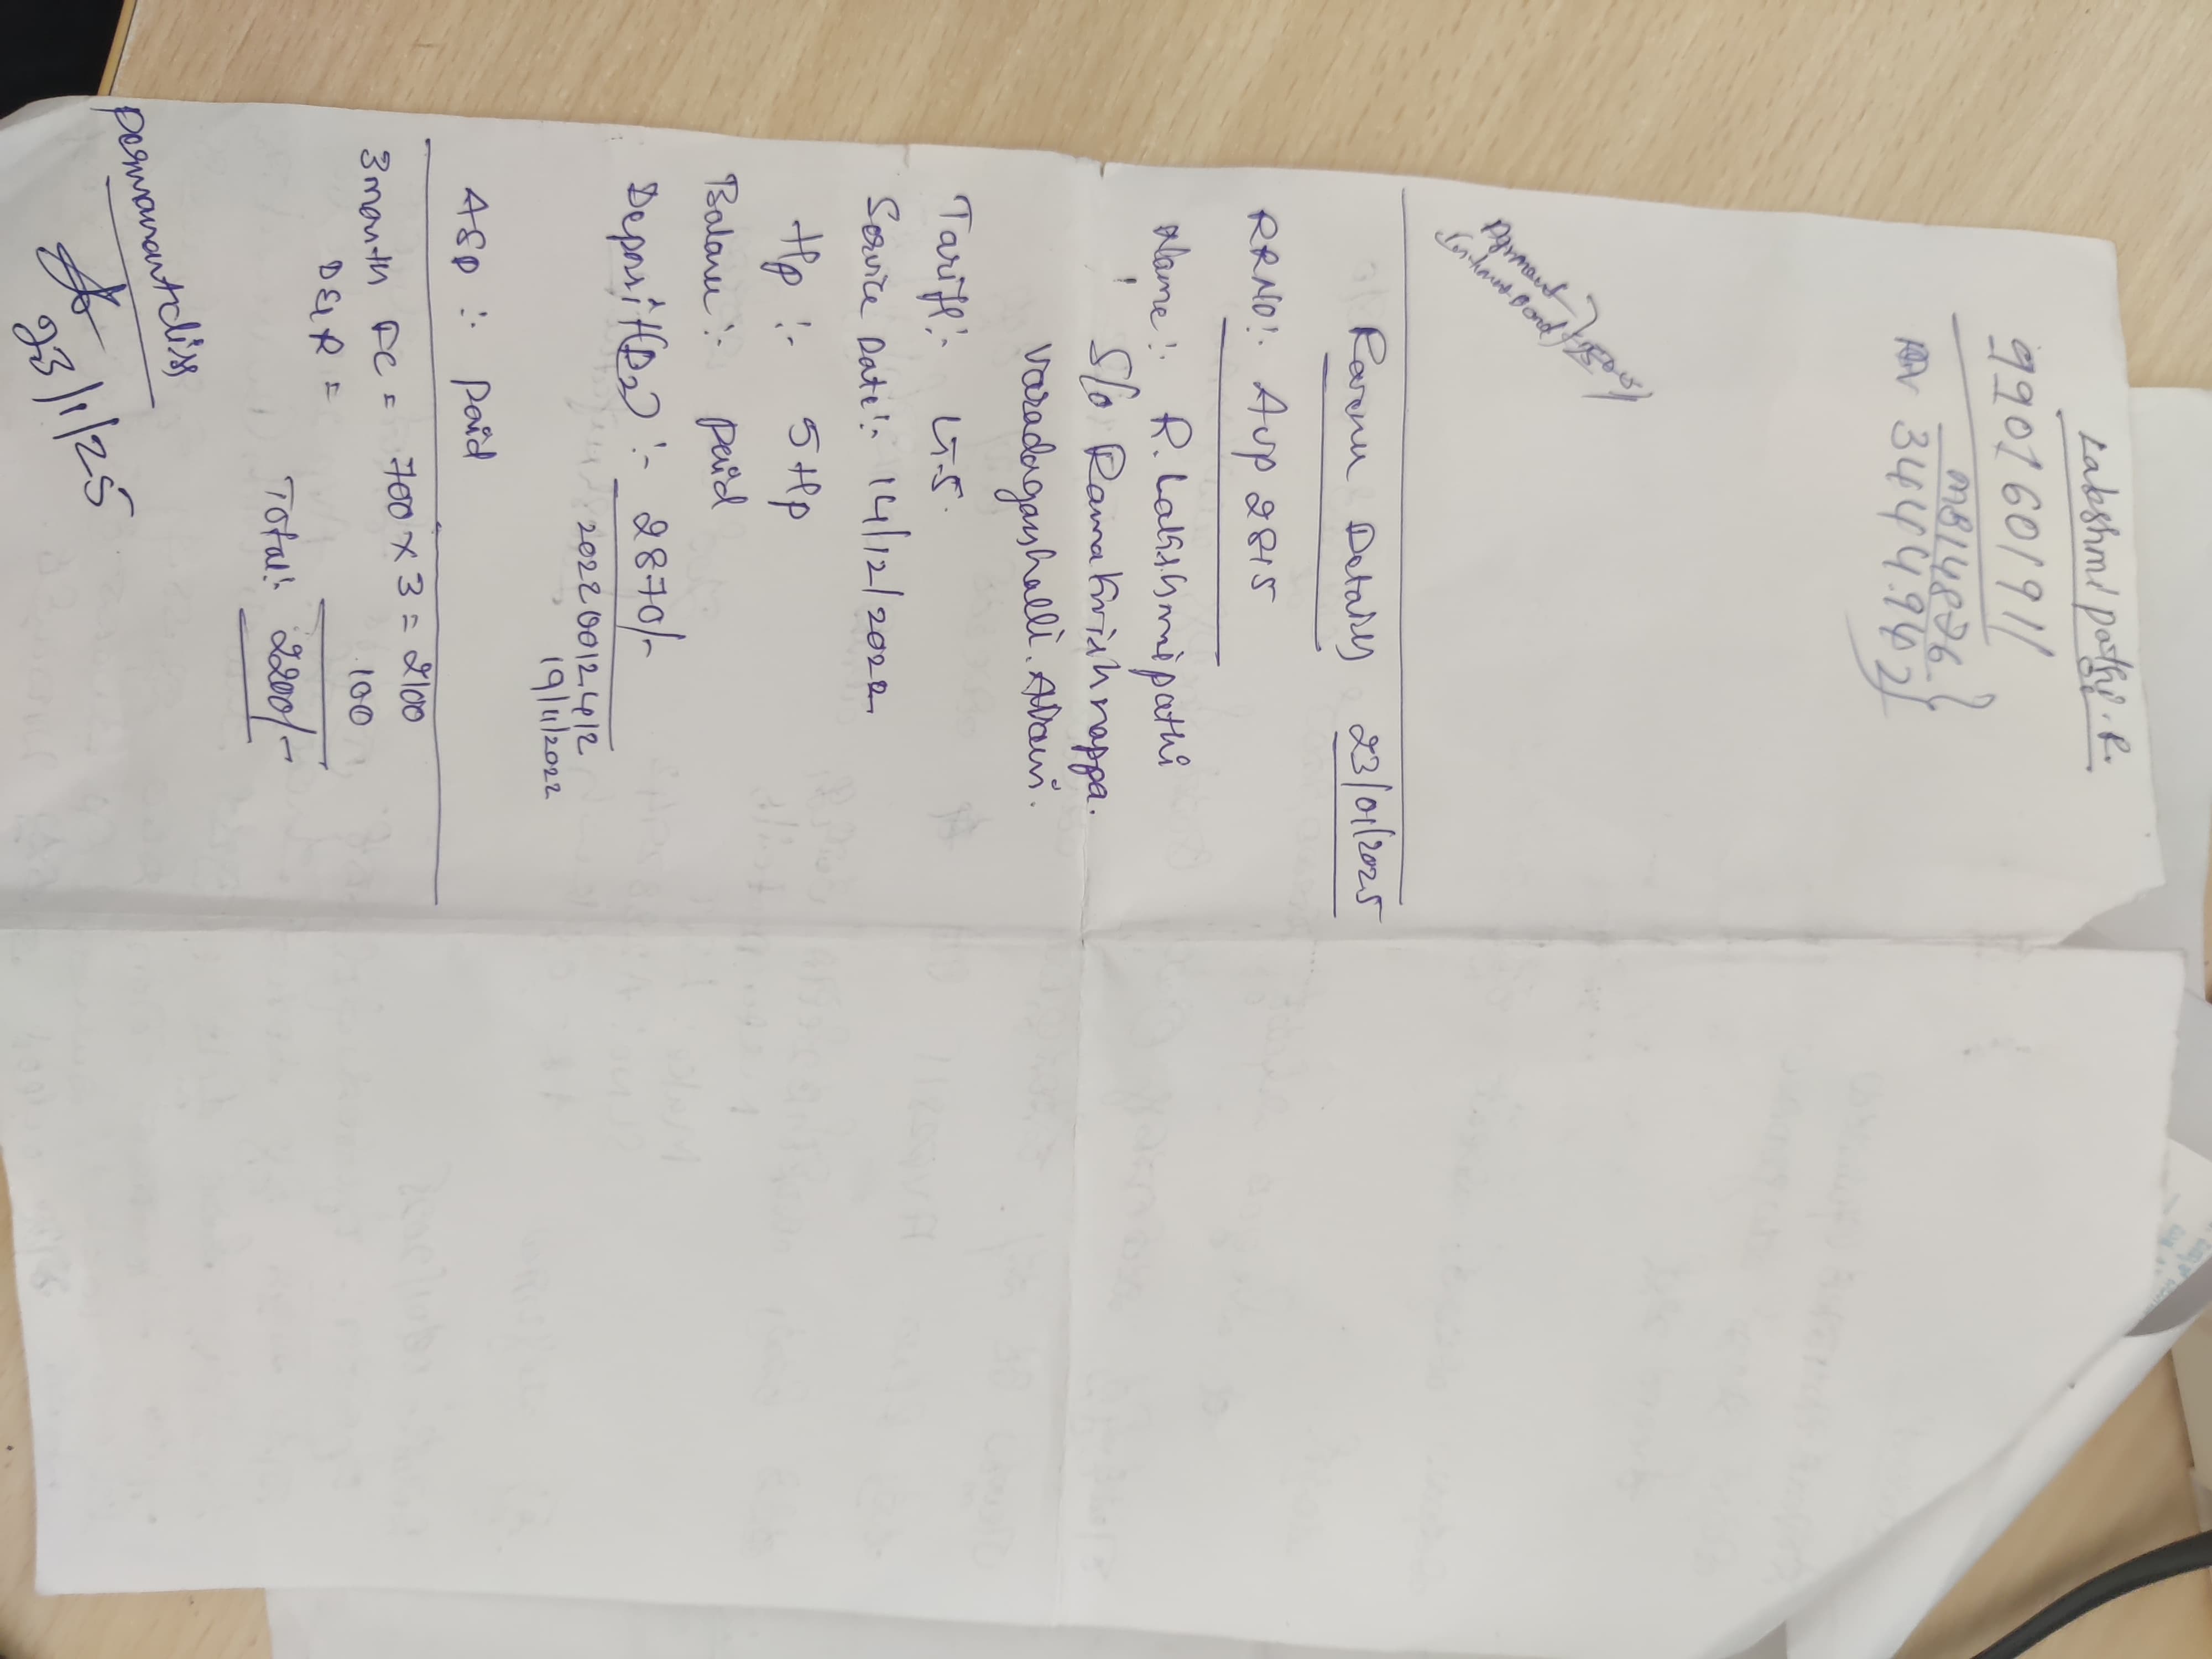 Lakshmipathi. R.
9901601911
MB14876
34444.9402
Revenu Details 23/01/2025
RRNO:- AVP 2815
Name:- R. Lakshmipathi
S/o Ramakrishnappa.
Varadaganahalli. Avani.
Tariff:- LT-5.
Service Date:- 14/12/2022
Hp :- 5 Hp
Balanu:- paid
Deposit(D2) :- 2870/-
20221001241 2
19/11/2022
ASD :- paid
3 month FC = 700 x 3 = 2100
DS&R = 100
Total:- 2200/-
permanantdiss
23/1/25